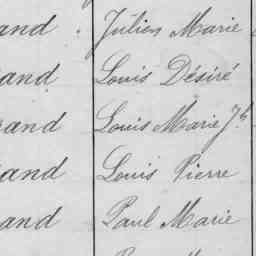 and . Julien Marie
and Louis Désiré
rand Louis Marie Jh
and Louis Pierre
and Paul Marie